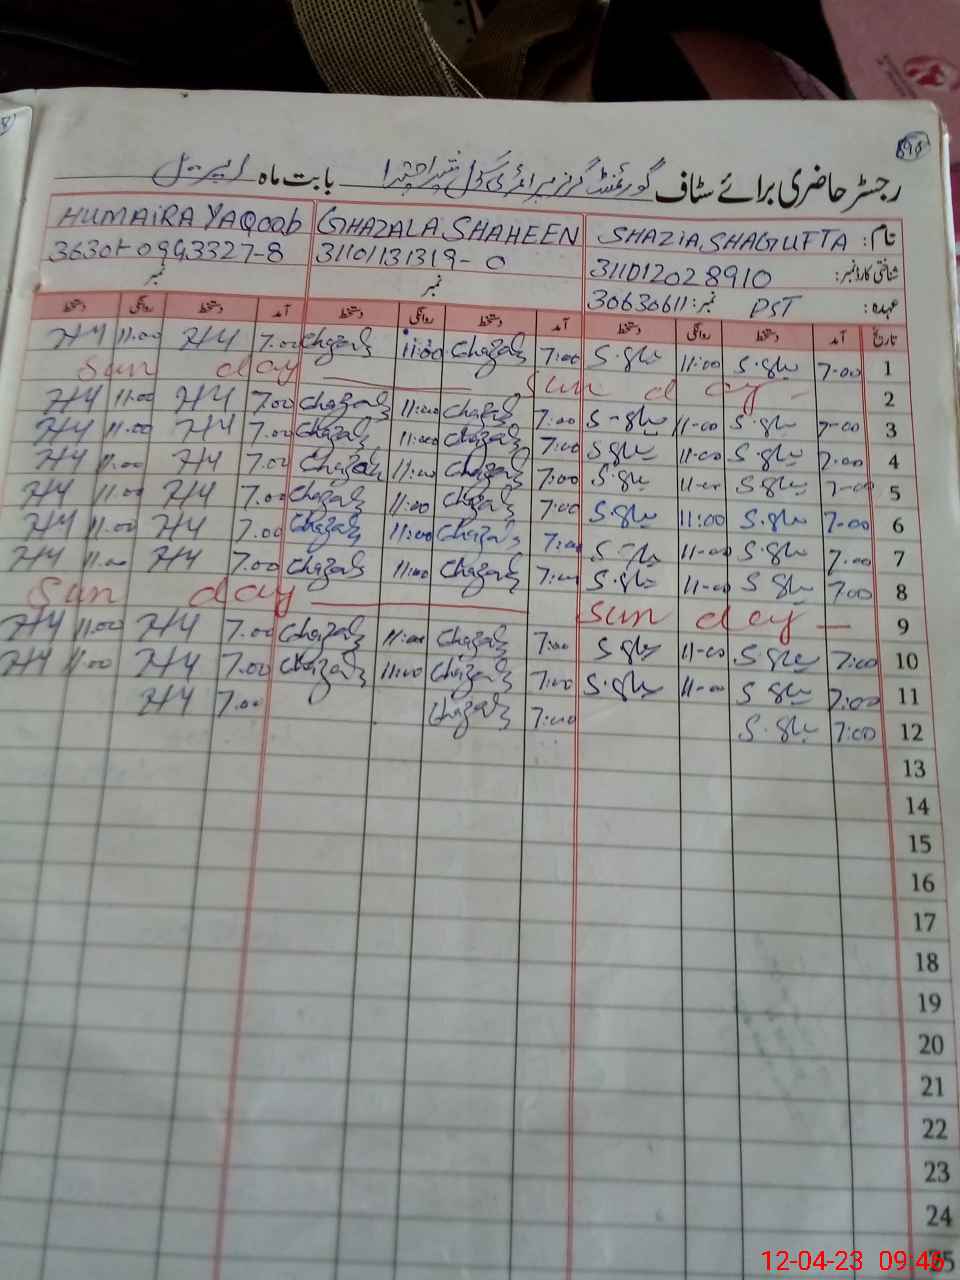 رجسٹر حاضری برائے سٹاف گورنمنٹ گرلز پرائمری سکول بابت ماہ اپریل
نام: SHAZIA SHAGUFTA GHAZALA SHAHEEN HUMAIRA YAQOOB
شناختی کارڈ نمبر: 311012028910 31101131319-0
عہدہ: PST نمبر: 30630611 نمبر نمبر
تاریخ آمد دستخط روانگی دستخط آمد دستخط روانگی دستخط آمد دستخط روانگی دستخط
1 7-00 S.گل 11:00 S.گل 7:00 Ghazala 11:00 Ghazala 7.00 HY 11.00 HY
2 Sun day Sun day
3 7-00 S.گل 11-00 S-گل 7:00 Ghazala 11:00 Ghazala 7.00 HY 11.00 HY
4 7.00 S.گل 11-00 Sگل 7:00 Ghazala 11:00 Ghazala 7.00 HY 11.00 HY
5 7-00 S.گل 11-00 S.گل 7:00 Ghazala 11:00 Ghazala 7.00 HY 11.00 HY
6 7-00 S.گل 11:00 S.گل 7:00 Ghazala 11:00 Ghazala 7.00 HY 11.00 HY
7 7.00 S.گل 11-00 S-گل 7:00 Ghazala 11:00 Ghazala 7.00 HY 11.00 HY
8 7:00 S.گل 11-00 S.گل 7:00 Ghazala 11:00 Ghazala 7.00 HY 11.00 HY
9 Sun day Sun day
10 7:00 S.گل 11-00 S.گل 7:00 Ghazala 11:00 Ghazala 7.00 HY 11.00 HY
11 7:00 S.گل 11-00 S.گل 7:00 Ghazala 11:00 Ghazala 7.00 HY 11.00 HY
12 7:00 S.گل 7:00 Ghazala 7.00 HY
13
14
15
16
17
18
19
20
21
22
23
24
25
12-04-23 09:46